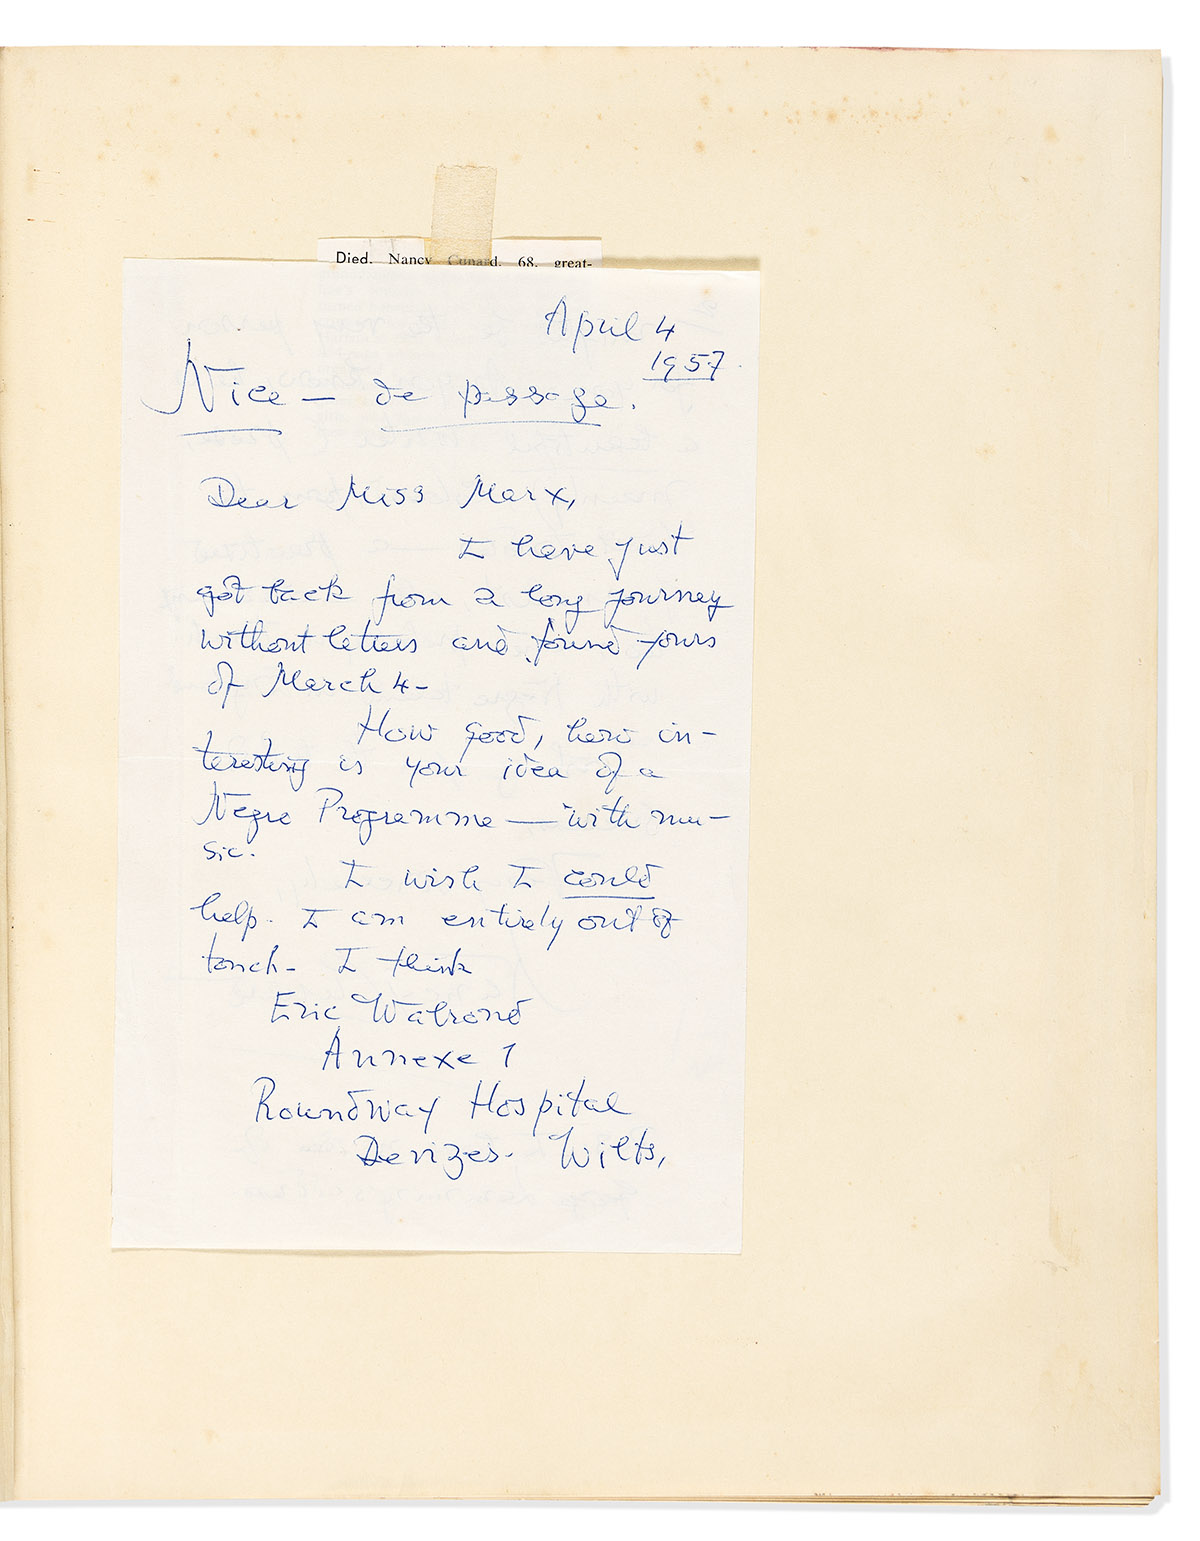 Died, Nancy Cunard, 68, great-
April 4
1957
Nice — de passage.
Dear Miss Marx,
I have just
got back from a long journey
without letters and found yours
of March 4-
How good, how in-
teresting is your idea of a
Negro Programme — with mu-
sic.
I wish I could
help. I am entirely out of
touch- I think
Eric Walrond
Annexe 1
Roundway Hospital
Devizes. Wilts,